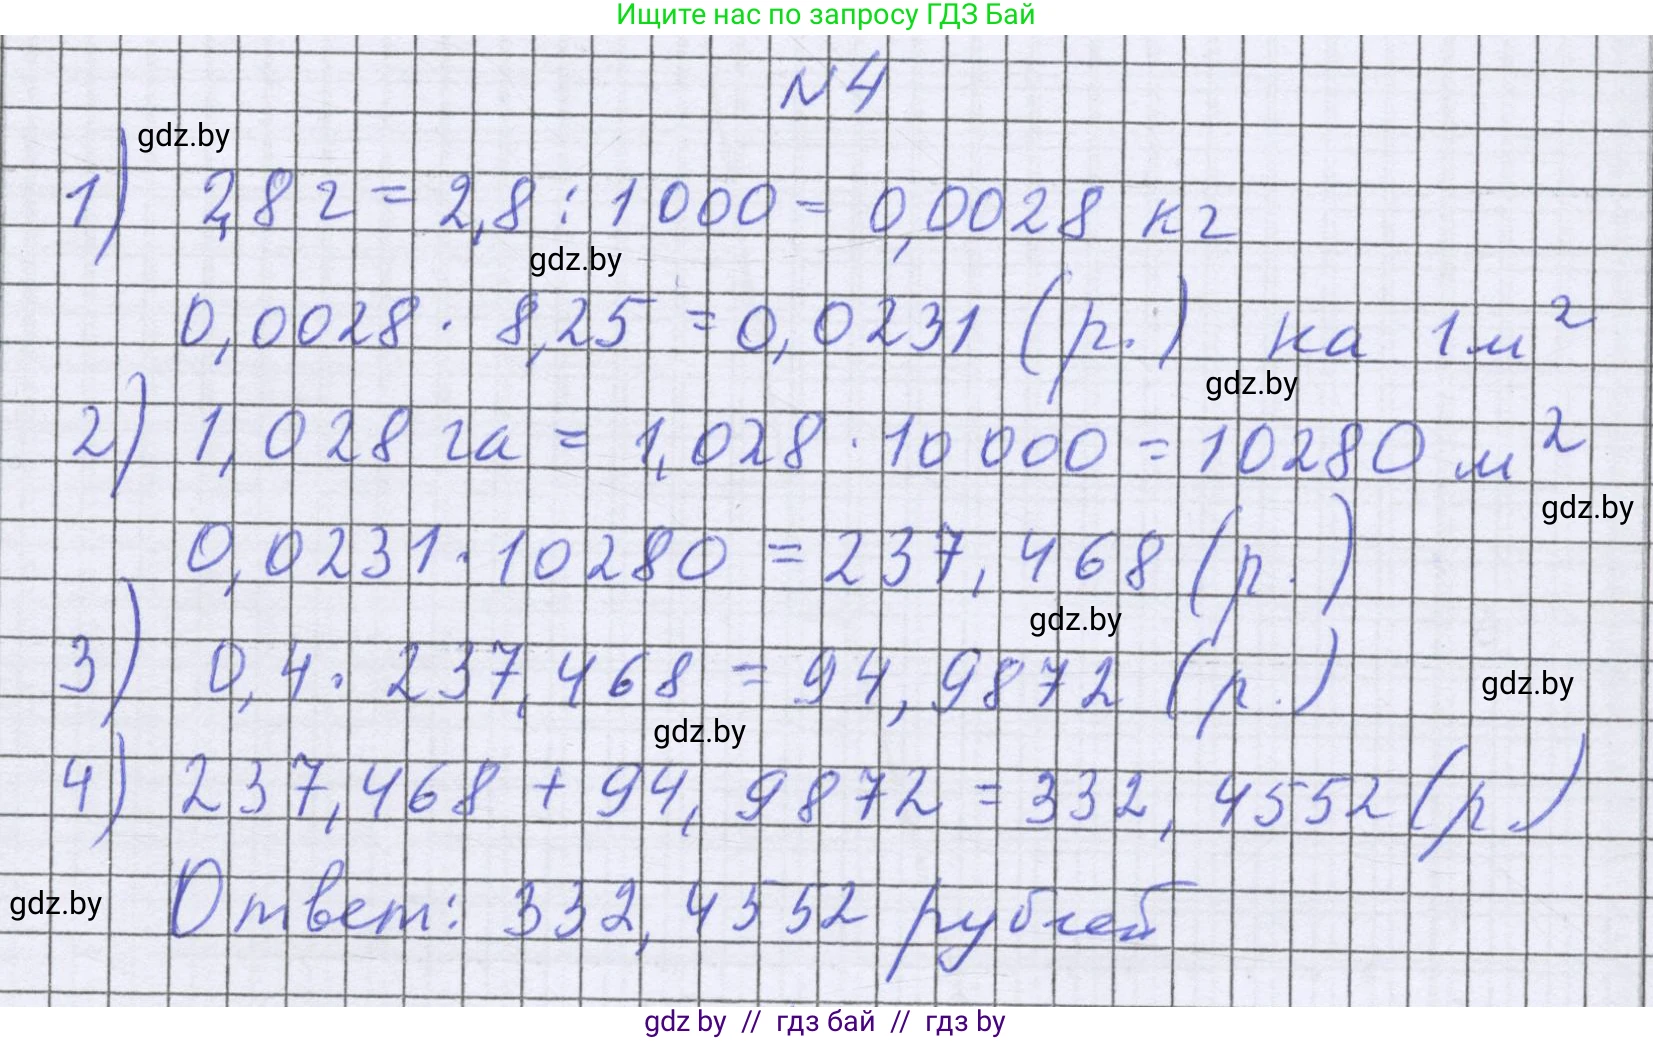 Ищите нас по запросу ГДЗ Бай
N 4
gdz.by
1) 2,8 г = 2,8 : 1000 = 0,0028 кг
gdz.by
0,0028 · 8,25 = 0,0231 (р.) на 1 м²
gdz.by
2) 1,028 га = 1,028 · 10 000 = 10280 м²
gdz.by
0,0231 · 10280 = 237,468 (р.)
gdz.by
3) 0,4 · 237,468 = 94,9872 (р.)
gdz.by
gdz.by
4) 237,468 + 94,9872 = 332,4552 (р.)
gdz.by
Ответ: 332,4552 рублей
gdz by // гдз бай // гдз by